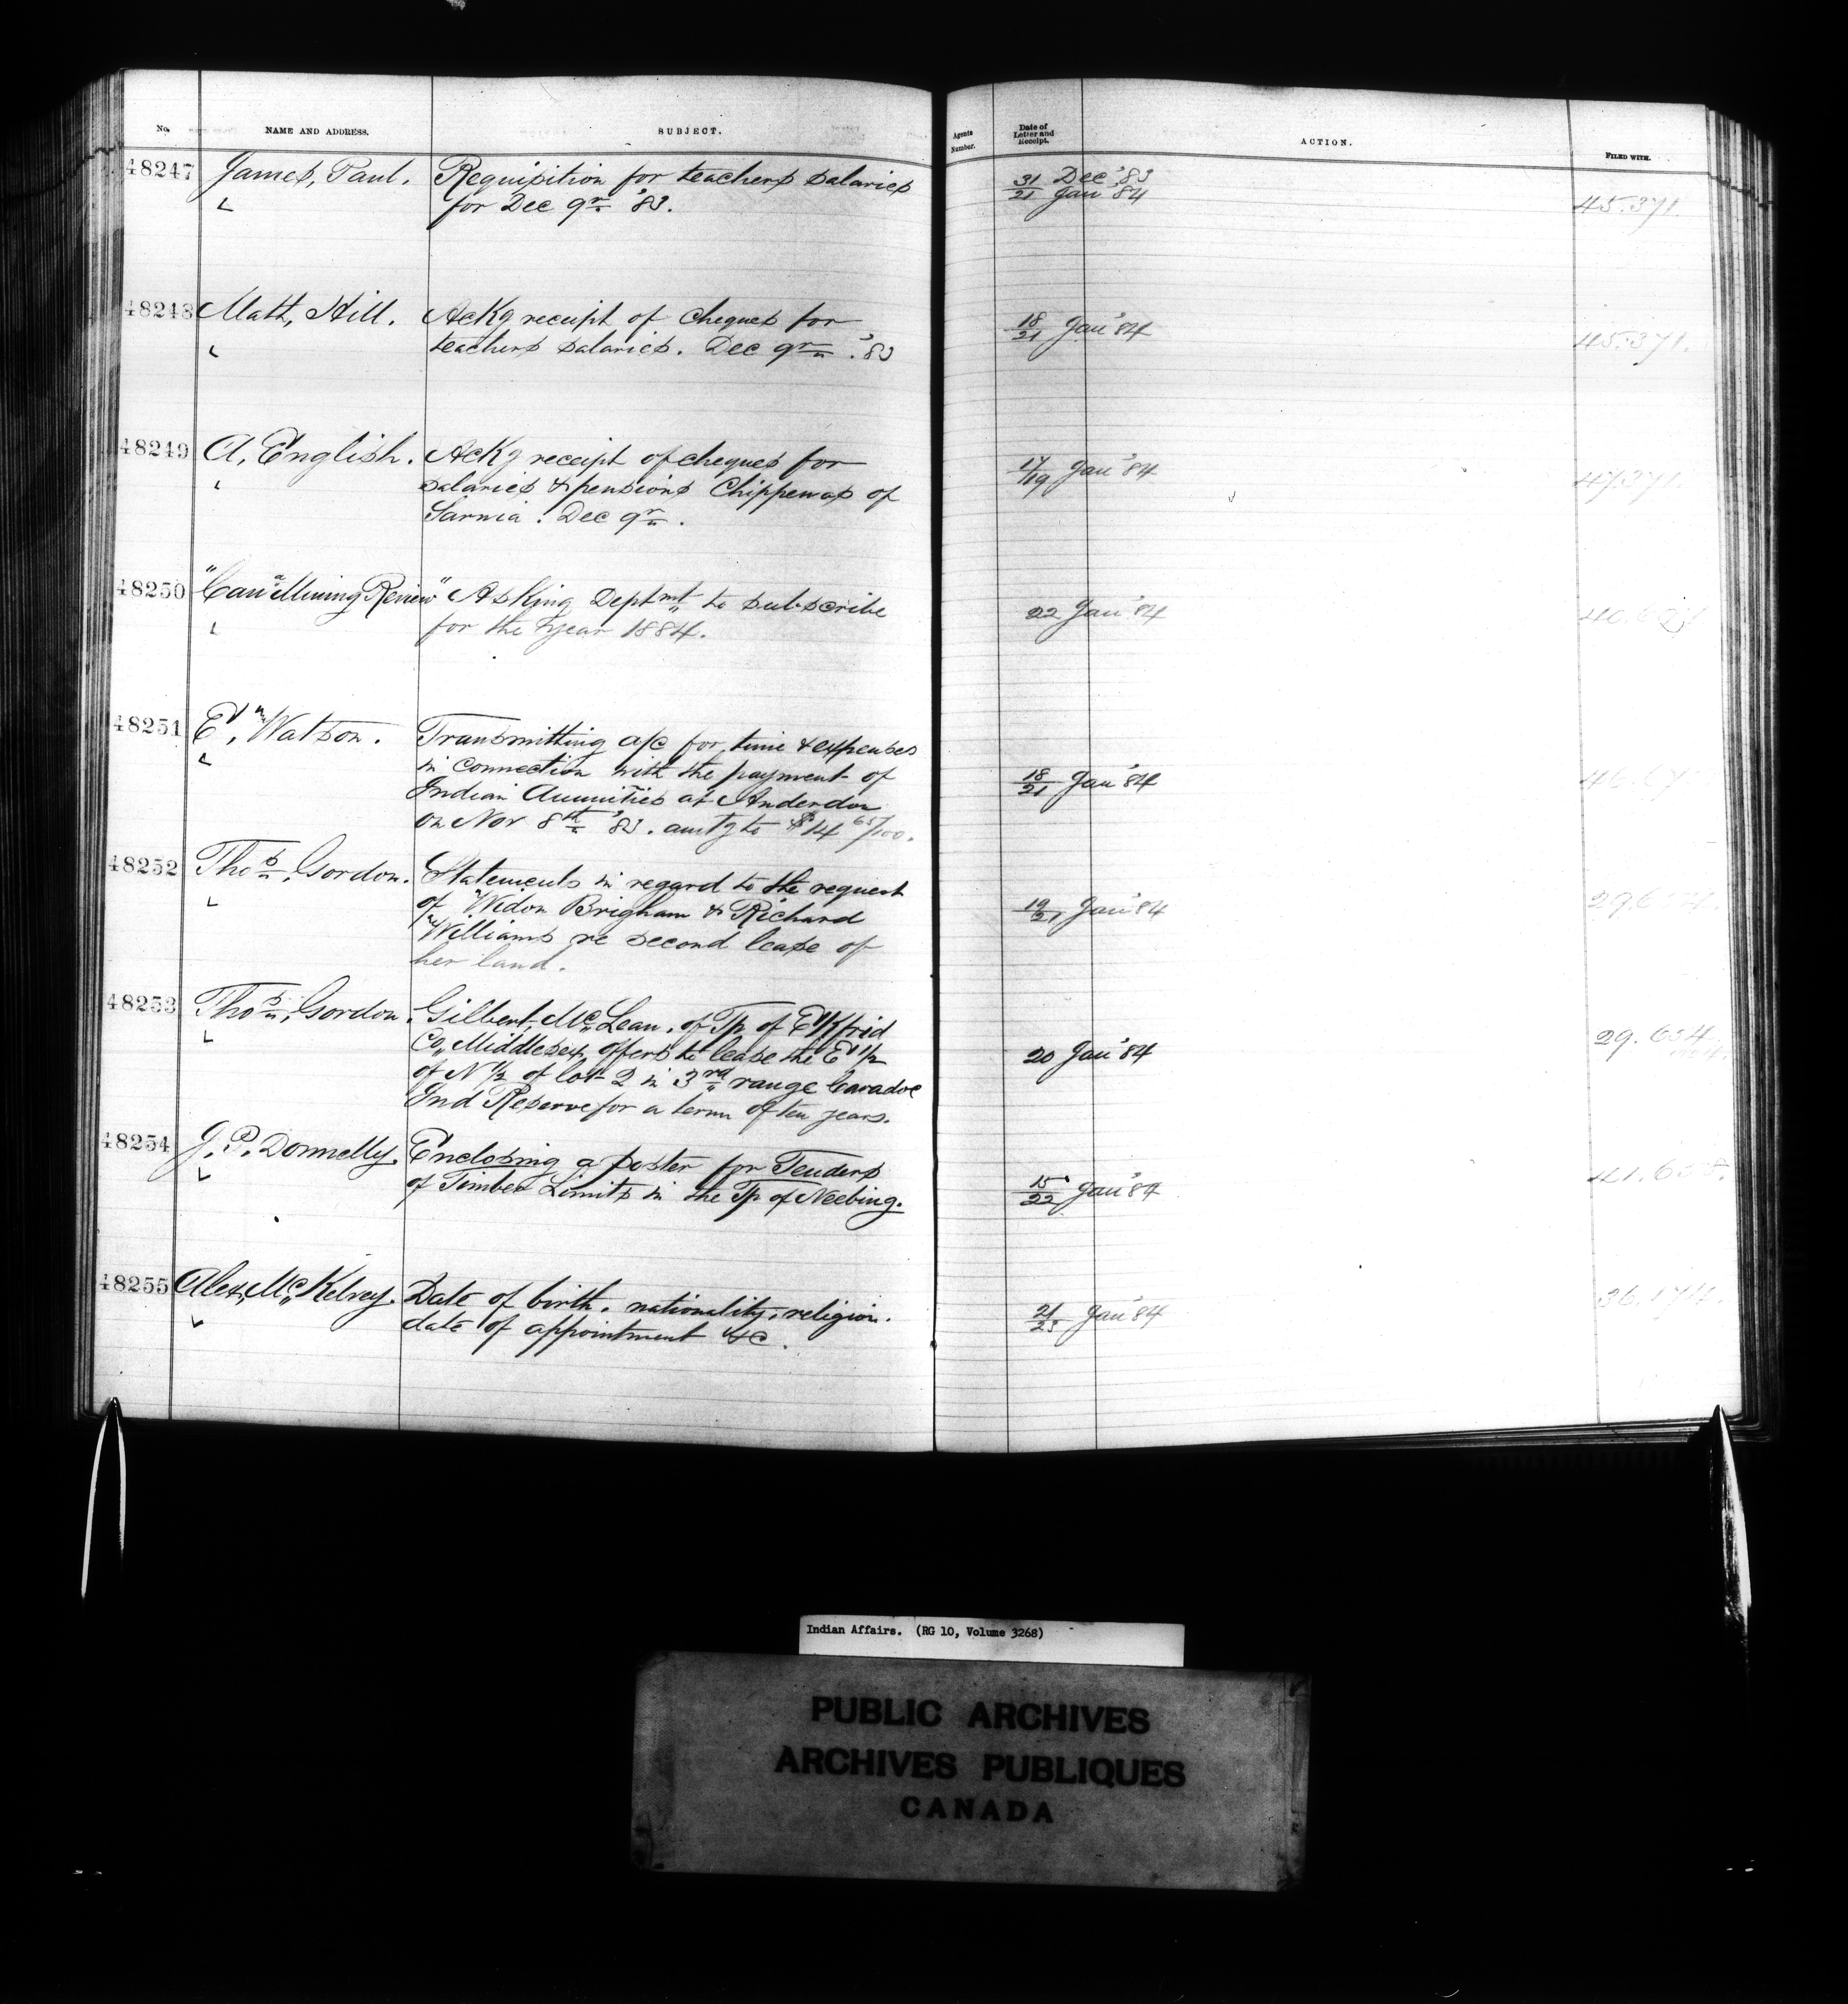 No.
NAME AND ADDRESS.
SUBJECT.
Agents Number.
Date of Letter and Receipt.
ACTION.
FILED WITH.
48247
James, Paul.
Requisition for teachers salaries
for Dec qr '83.
31 Dec '83
21 Jan '84
45.371.
48248
Matt, Hill.
Ackg receipt of cheques for
teachers salaries. Dec qr '83
18/21 Jan '84
45.371.
48249
A, English.
Ackg receipt of cheques for
salaries & pensions Chippewas of
Sarnia. Dec qr.
17/19 Jan '84
48250
"Cana Mining Review"
Asking Deptmt to subscribe
for the year 1884.
22 Jan '84
48251
Watson.
Transmitting a/c for time & expenses
in connection with the payment of
Indian Annuities at Anderdon
on Nov 8th '83. amtg to $14 65/100.
18/21 Jan '84
48252
Thos, Gordon.
Statements in regard to the request
of Widow Brigham & Richard
Williams re second lease of
her land.
19/21 Jan '84
48253
Thos, Gordon.
Gilbert, McLean, of Tp of Ekfrid
Co, Middlesex, offers to lease the E 1/2
of N 1/2 of lot 2 in 3rd range Caradoc
Ind Reserve for a term of ten years.
20 Jan '84
29.654
48254
J. P. Donnelly.
Enclosing a poster for Tenders
of Timber Limits in the Tp of Neebing.
15/22 Jan '84
48255
Alex, McKelvey.
Date of birth, nationality, religion,
date of appointment &c.
21/23 Jan '84
36.174.
Indian Affairs. (RG 10, Volume 3268)
PUBLIC ARCHIVES
ARCHIVES PUBLIQUES
CANADA